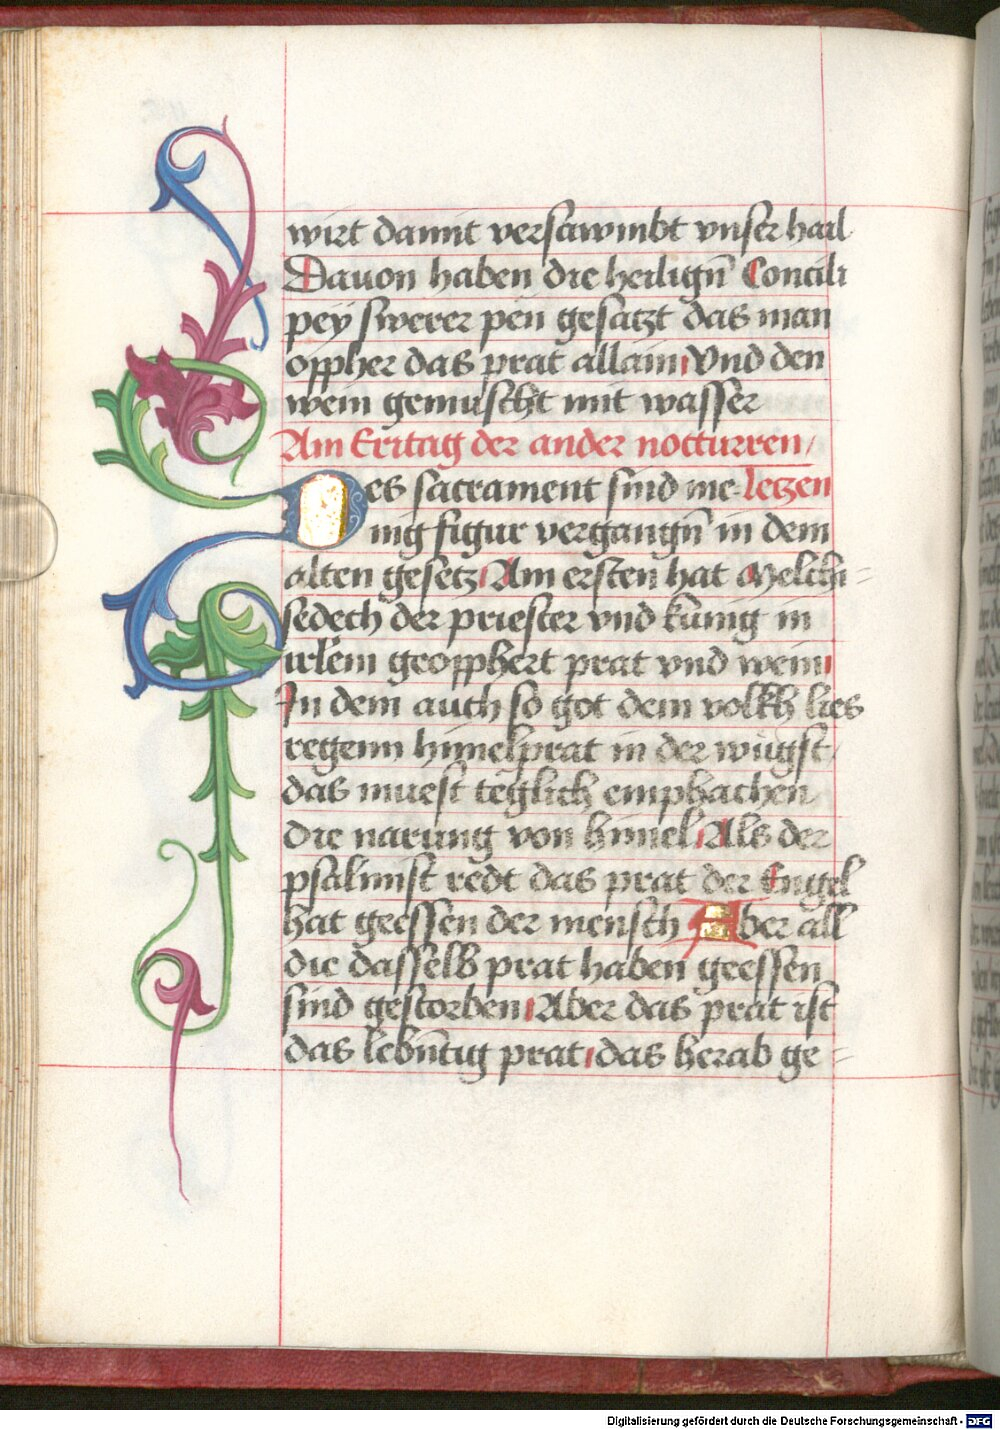 wirt damit versawmbt vnser hail
Dauon haben die heiligñ Concili
pey swerer pen gesatzt das man
oppher das prat allain Vnd den
wein gemuscht mit wasser
Am Eritag der ander nocturren
Des sacrament sind me- letzen
nig figur vergangñ in dem
alten gesetz Am ersten hat Melchi=
sedech der priester vnd kunig in
irl̄em geopphert prat vnd wein
In dem auch so got dem volkh lies
regenn himelprat in der wügst
das muest teglich emphachen
die narung von himel Als der
psalmist redt das prat der Engel
hat geessen der mensch Aber all
die dasselb prat haben geessen
sind gestorben Aber das prat ist
das lebñtig prat das herab ge=
Digitalisierung gefördert durch die Deutsche Forschungsgemeinschaft - DFG